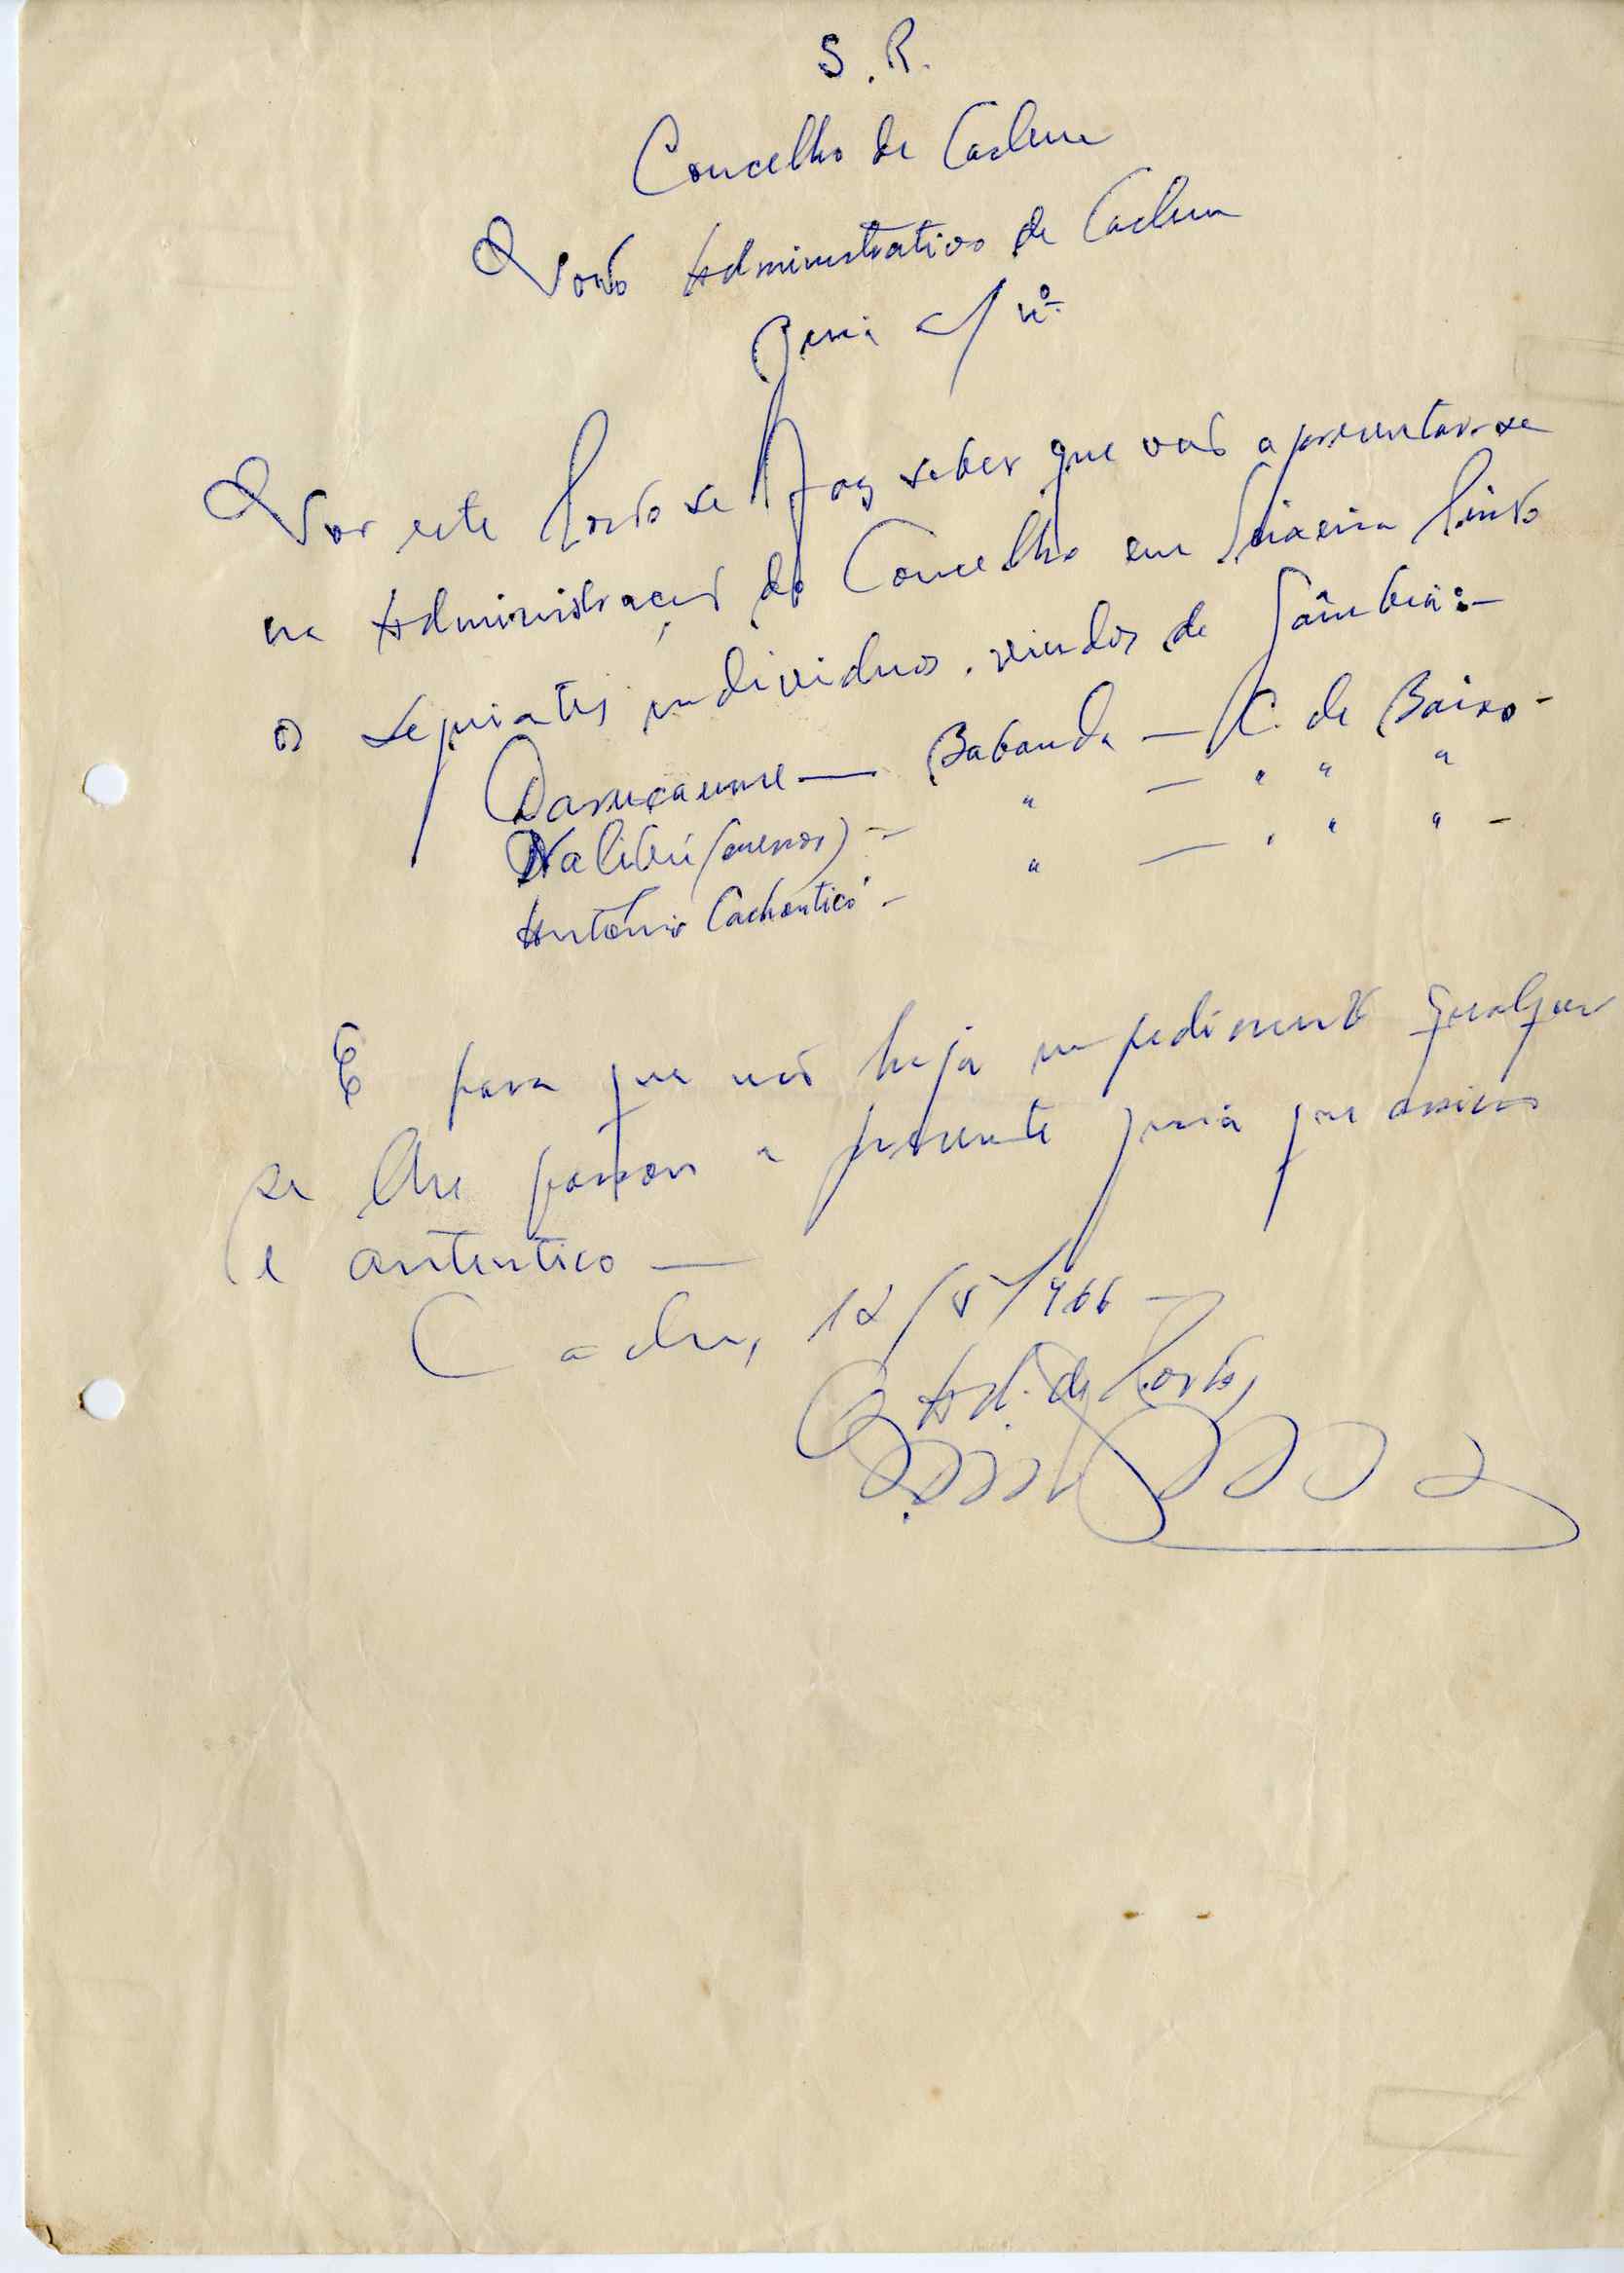 S. R.
Concelho de Cacheu
Posto Administrativo de Cacheu
Guia s/ nº
Por este Posto se faz saber que vão apresentar-se
na Administração do Concelho em Teixeira Pinto
os seguintes individuos, vindos de Gâmbia:—
Babanda — C. de Baixo -
Nalibú (menor) - " — " " "
António - " — " " " -
E para que não haja impedimento qualquer
se lhe passou a presente guia que assino
e autentico —
Cacheu, 12/5/966 —
O Ad. de Posto,